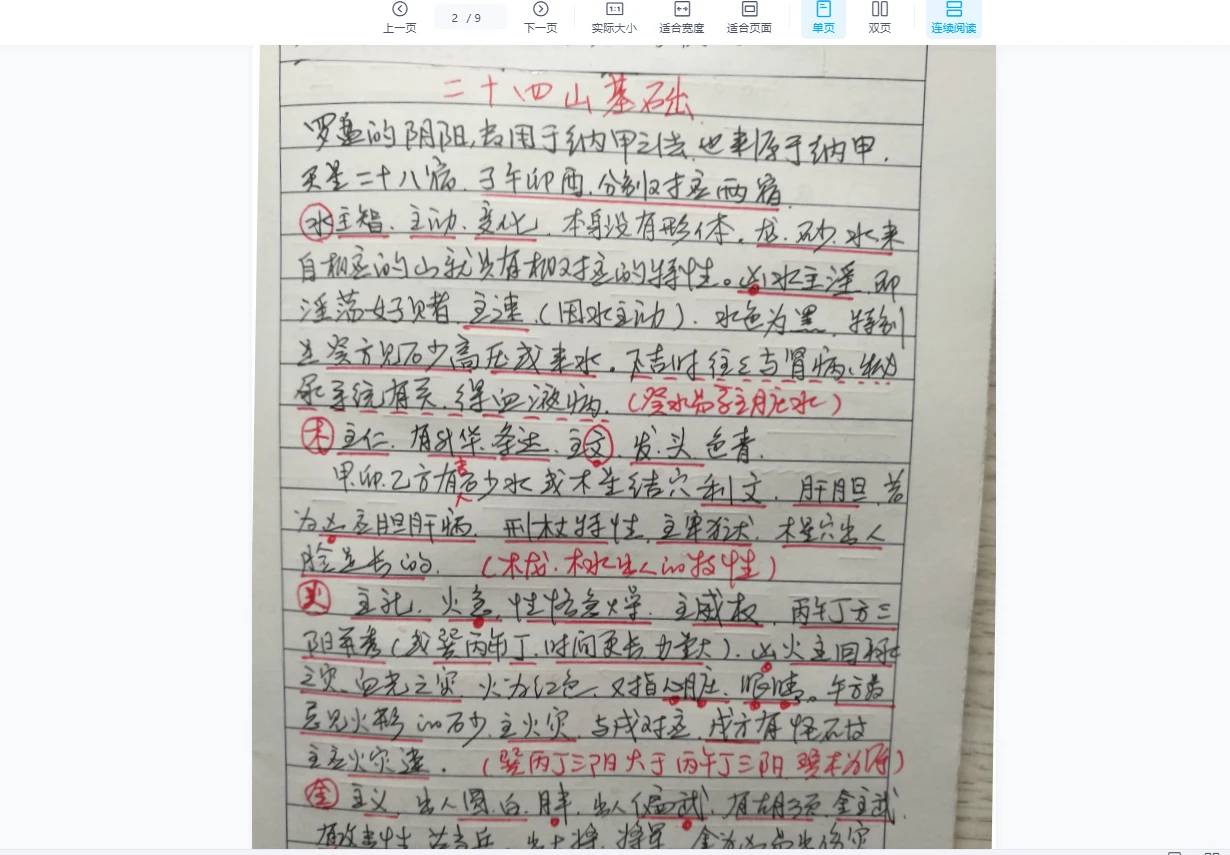 上一页
2 / 9
下一页
1:1
实际大小
适合宽度
适合页面
单页
双页
连续阅读
二十四山基础
罗盘的阴阳,去用于纳甲之法,也来源于纳甲.
天星二十八宿.子午卯酉,分别对应两宿
水主智.主动.变化,本身没有形体。龙.砂.水来
自相应的山就具有相对应的特性。凶水主淫,即
淫荡好色者 主速(因水主动).水色为黑.特别
是癸方见砂高压或来水。不吉时往往与肾病、泌
尿系统有关,得血液病.(癸水
木主仁.有升华.条达.主文.发.头.色青.
甲.卯.乙方有吉砂水或木星结穴利文.肝胆.若
为凶应胆肝病.刑杖特性.主牢狱.木星穴出人
脸是长的.(木龙.木水出人的特性)
火 主礼.火急,性格急火学.主威权.丙午丁方三
阳齐秀(或巽丙午丁.时间更长力量大).凶火主回禄
之灾、血光之灾.火为红色,又指心脏.眼睛。午方若
见火形的砂.主火灾.与戌对应,戌方有怪石故
主应火灾
(巽丙丁三阳大于丙午丁三阳
金 主义.出人圆.白.胖.出人仪 武.有胡须.金主武